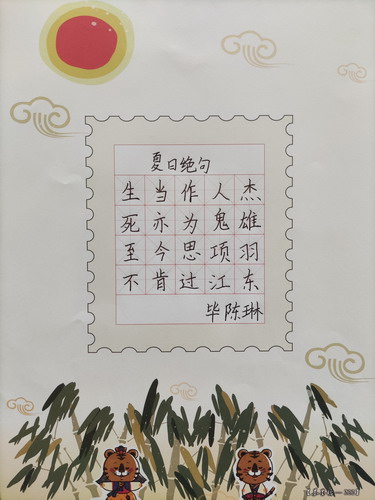 夏日绝句
生当作人杰
死亦为鬼雄
至今思项羽
不肯过江东
毕陈琳